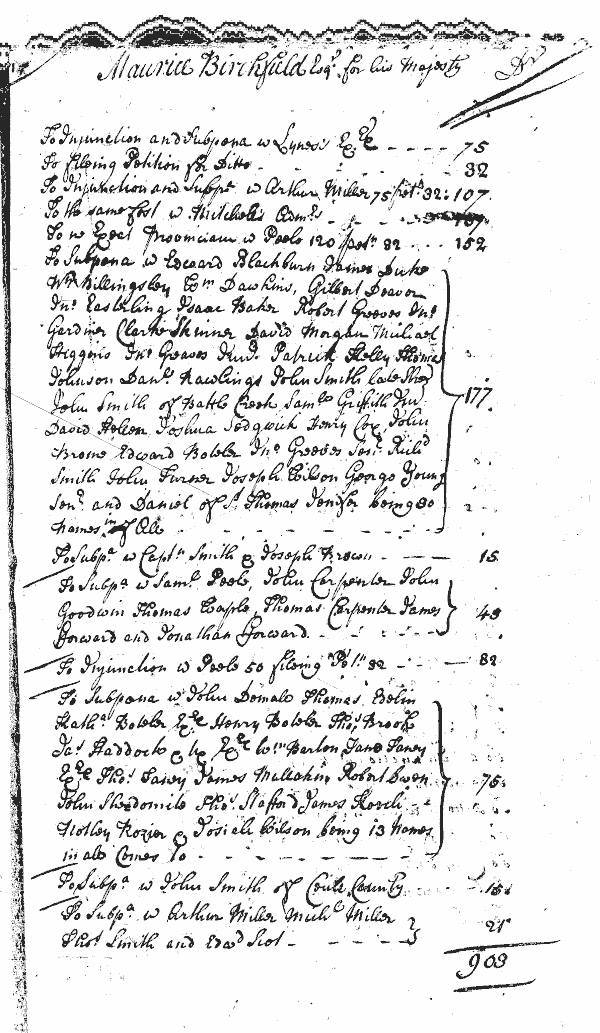 Maurice Birchfield Esqr. for his Majesty Dr
To Injunction and Subpena w Lynes's Exex - - - - 75
To fileing Petition for Ditto - - - - 32
To Injunction and Subpa w Arthur Miller 75 petn 32: 107
To the same fost w Mitchells Admrs - - -
To w Exect Provinciaw w Peele 120 petn 32 - - - 152
To Subpena w Edward Blackburn James Duke
Wm Killingsley Tom Dawkins, Gilbert Deavor
Jno. Easterling Isaac Baker Robert Greeves Jno.
Gardiner Clarke Skinner David Morgan Michael
Higgens Jno. Greaves Junr. Patrick Kelly Thomas
Johnson Danl. Rawlings John Smith late Sher
John Smith of Battle Creek Saml. Griffith Jur
David Hellen Joshua Sedgwick Henry Cox John 177
Brome Edward Boteler Jno Greeves Senr. Richd
Smith John Turner Joseph Wilson George Young
Senr. and Daniel of St. Thomas Jenifer being 30
names in all - - - -
To Subpa. w Captn Smith & Joseph Brown - - - 15
To Subpa w Saml. Peele, John Carpenter John
Goodwin Thomas Caple, Thomas Carpenter James 48
Forward and Jonathan Forward - - - -
To Injunction w Peele 50 fileing Petn 32 - - - 82
To Subpena w John Demall Thomas Evelin
Katha Boteler Exex Henry Boteler Thos. Brooke
Jas. Haddock & ux Exex Wm Barton Jane Saney
Exex Thos. Saney James Mullakin Robert Owen 75
John Shedomile Thos. Stafford James
Notley Rozier & Josiah Wilson being 13 names
in all Comes to - - - -
To Subpa w John Smith of Cecil County - - 15
To Subpa. w Arthur Miller Michl Miller
Thos. Smith and Edwd Scot - - - - 21
903